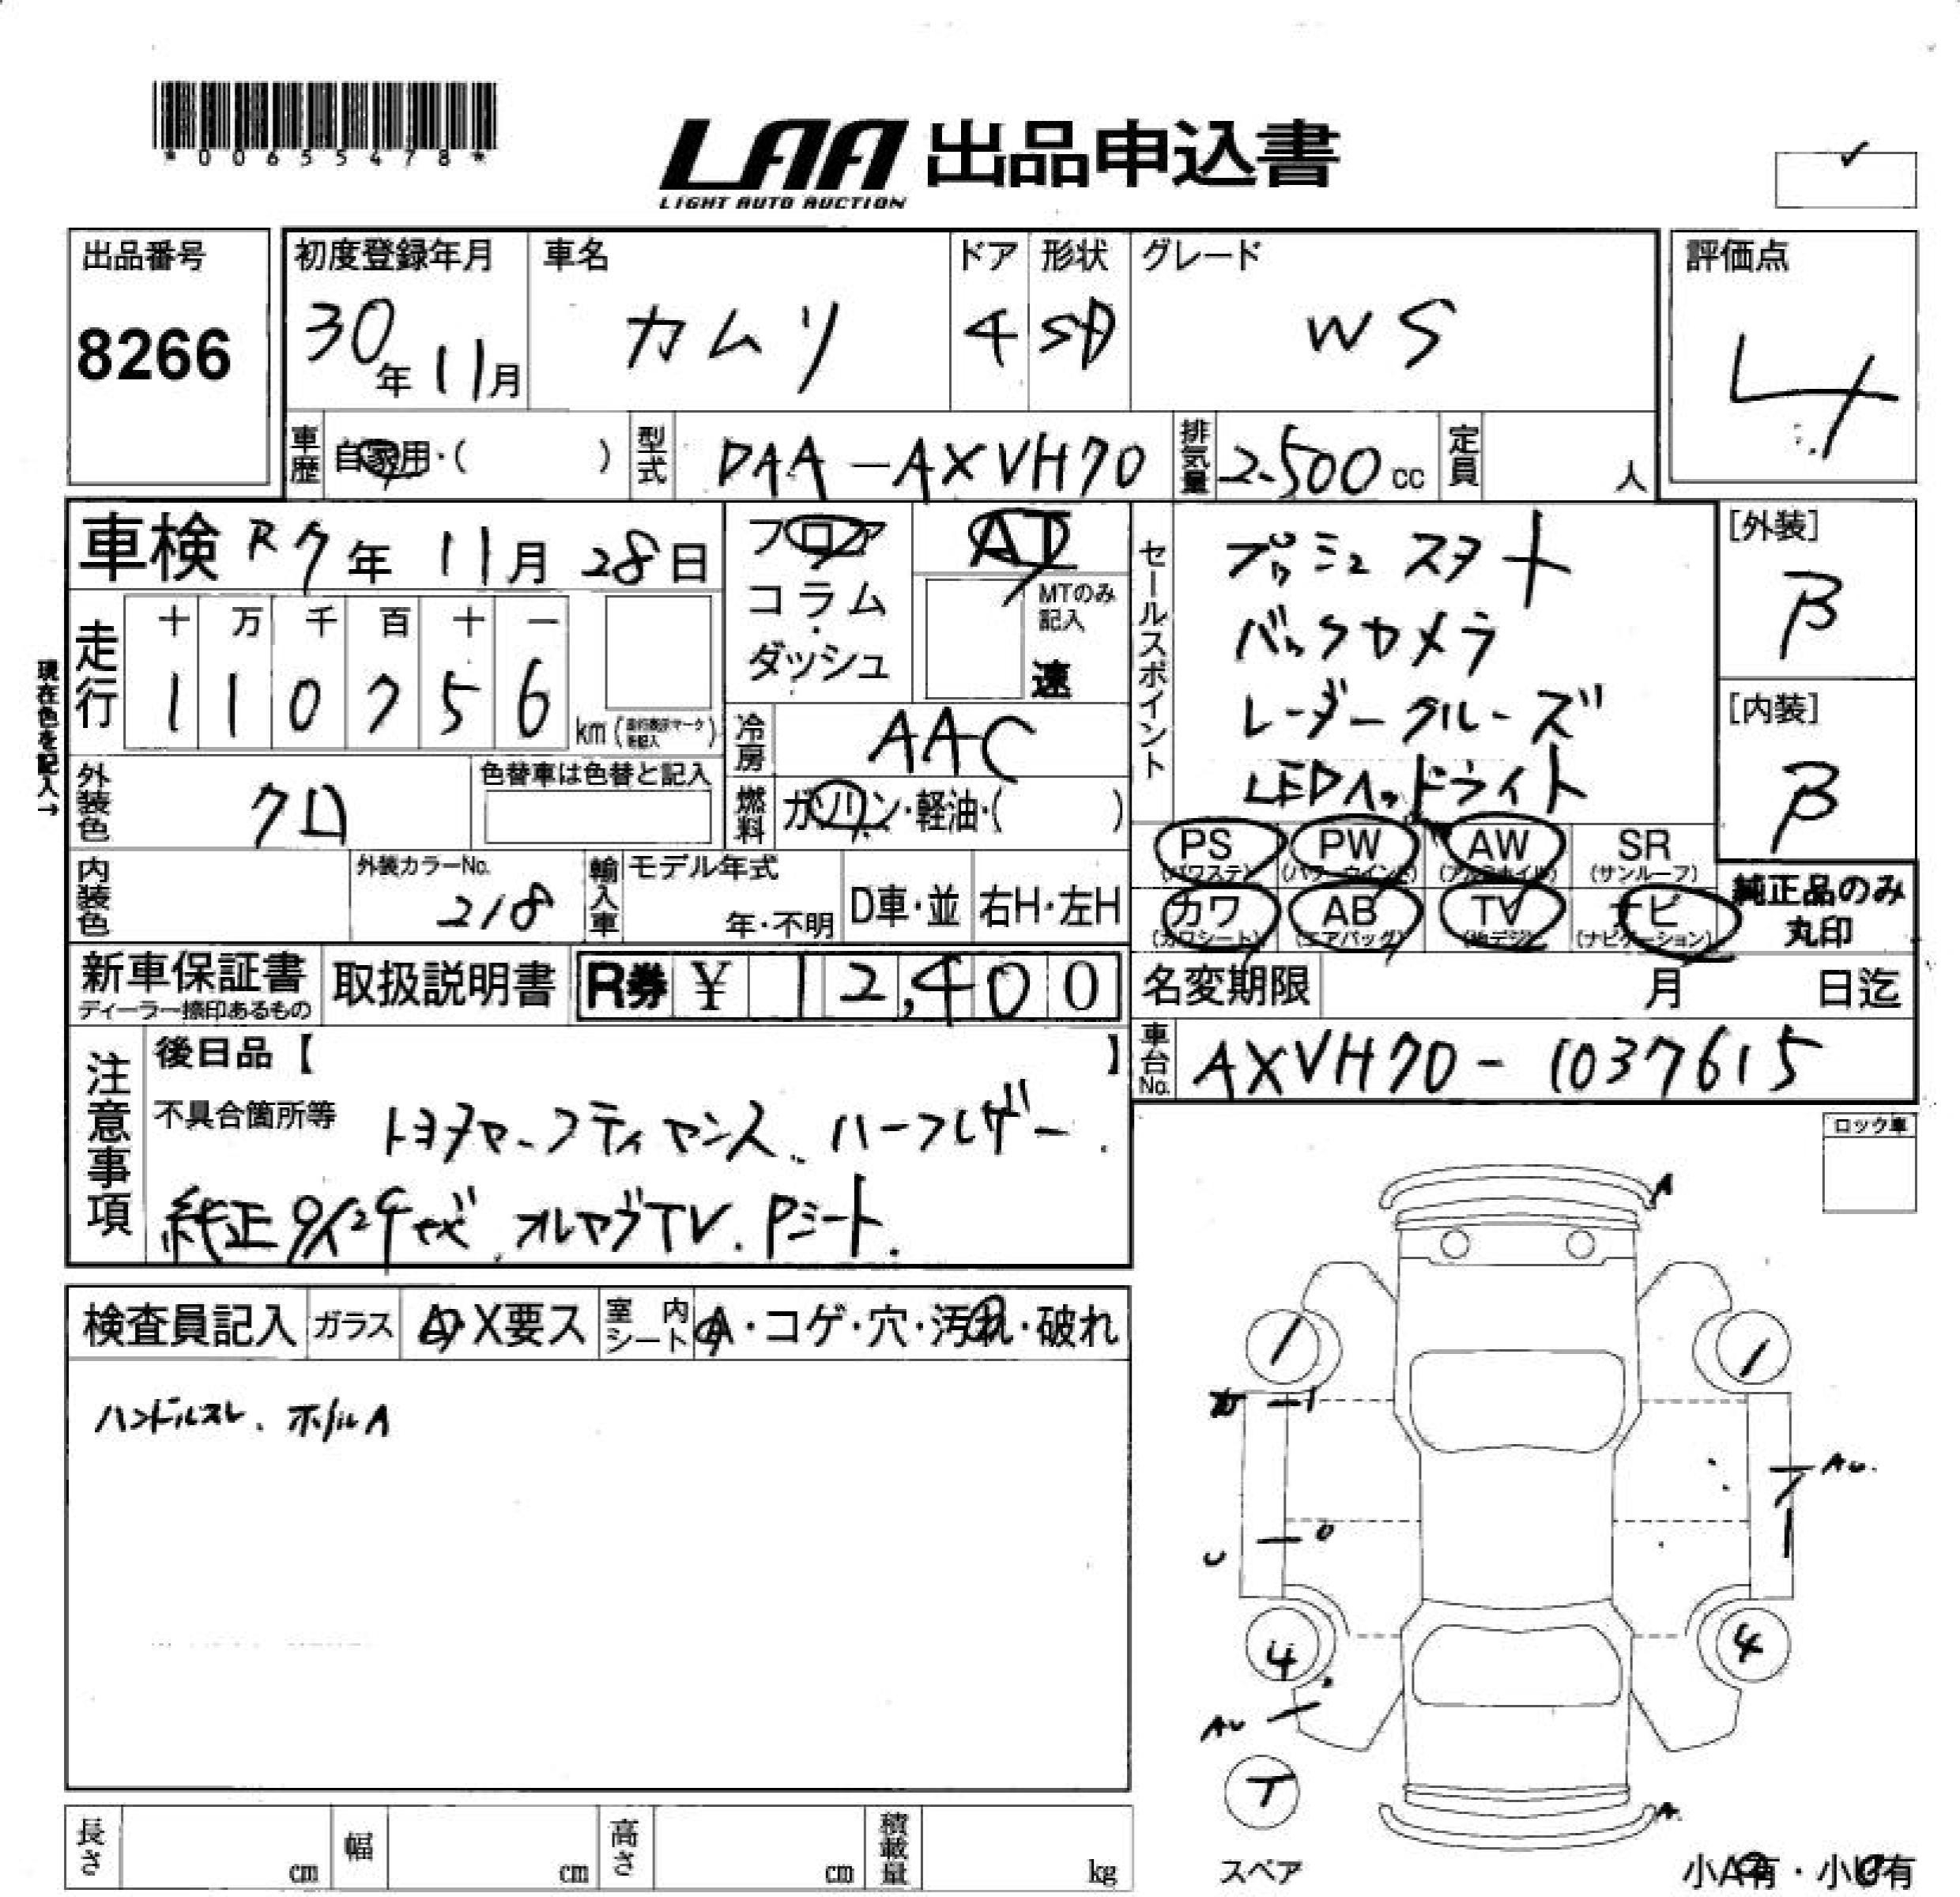 *00655478*
LAA 出品申込書
LIGHT AUTO AUCTION
✓
出品番号
8266
初度登録年月
30年11月
車名
カムリ
ドア
4
形状
SD
グレード
WS
評価点
4
車歴 自家用・( )
型式 DAA-AXVH70
排気量 2.500cc
定員 人
車検 R7年11月28日
フロア
コラム
・
ダッシュ
AT
MTのみ
記入
速
セールスポイント
プッシュスタート
バックカメラ
レーダークルーズ
LEDヘッドライト
[外装]
B
[内装]
B
現在色を記入→
走行
十 万 千 百 十 一
1 1 0 7 5 6
km
冷房 AAC
外装色 クロ
色替車は色替と記入
燃料 ガソリン・軽油・( )
PS
(パワステ)
PW
(パワーウインド)
AW
(アルミホイル)
SR
(サンルーフ)
カワ
(カワシート)
AB
(エアバッグ)
TV
(地デジ)
ナビ
(ナビゲーション)
純正品のみ
丸印
内装色
外装カラーNo.
218
輸入車
モデル年式
年・不明
D車・並
右H・左H
新車保証書
ディーラー捺印あるもの
取扱説明書
R券 ¥ 12,400
名変期限 月 日迄
車台No. AXVH70-1037615
注意事項
後日品【 】
不具合箇所等 トヨタセーフティセンス、ハーフレザー.
純正 TV. Pシート.
ロック車
検査員記入
ガラス A・X要ス
室内シート A・コゲ・穴・汚れ・破れ
ハンドルスレ、ホイルA
A
1 1
1
AU.
U
4 4
AU
T
A.
スペア
小A有・小U有
長さ cm
幅 cm
高さ cm
積載量 kg